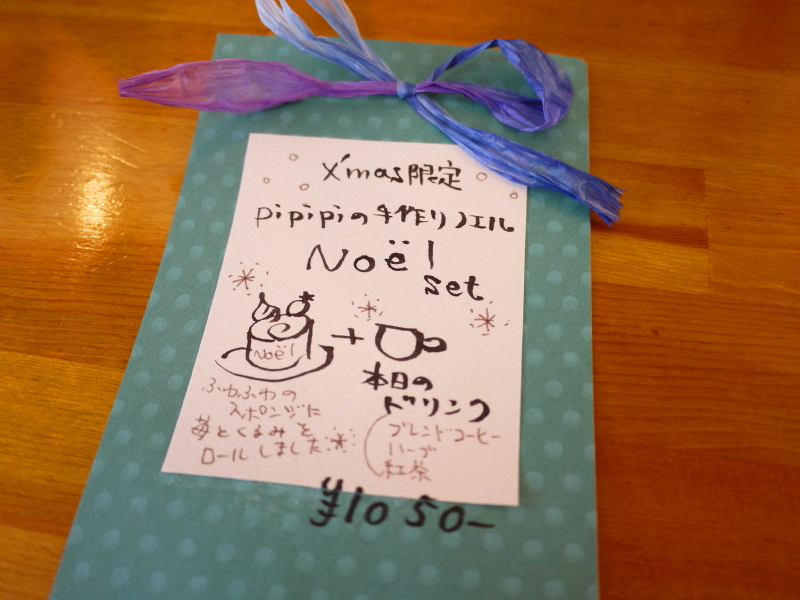 X'mas限定
pipipiの手作りノエル
Noël
set
Noël
+
本日の
ドリンク
ふわふわの
スポンジに
苺とくるみを
ロールしました
ブレンドコーヒー
ハーブ
紅茶
¥1050-